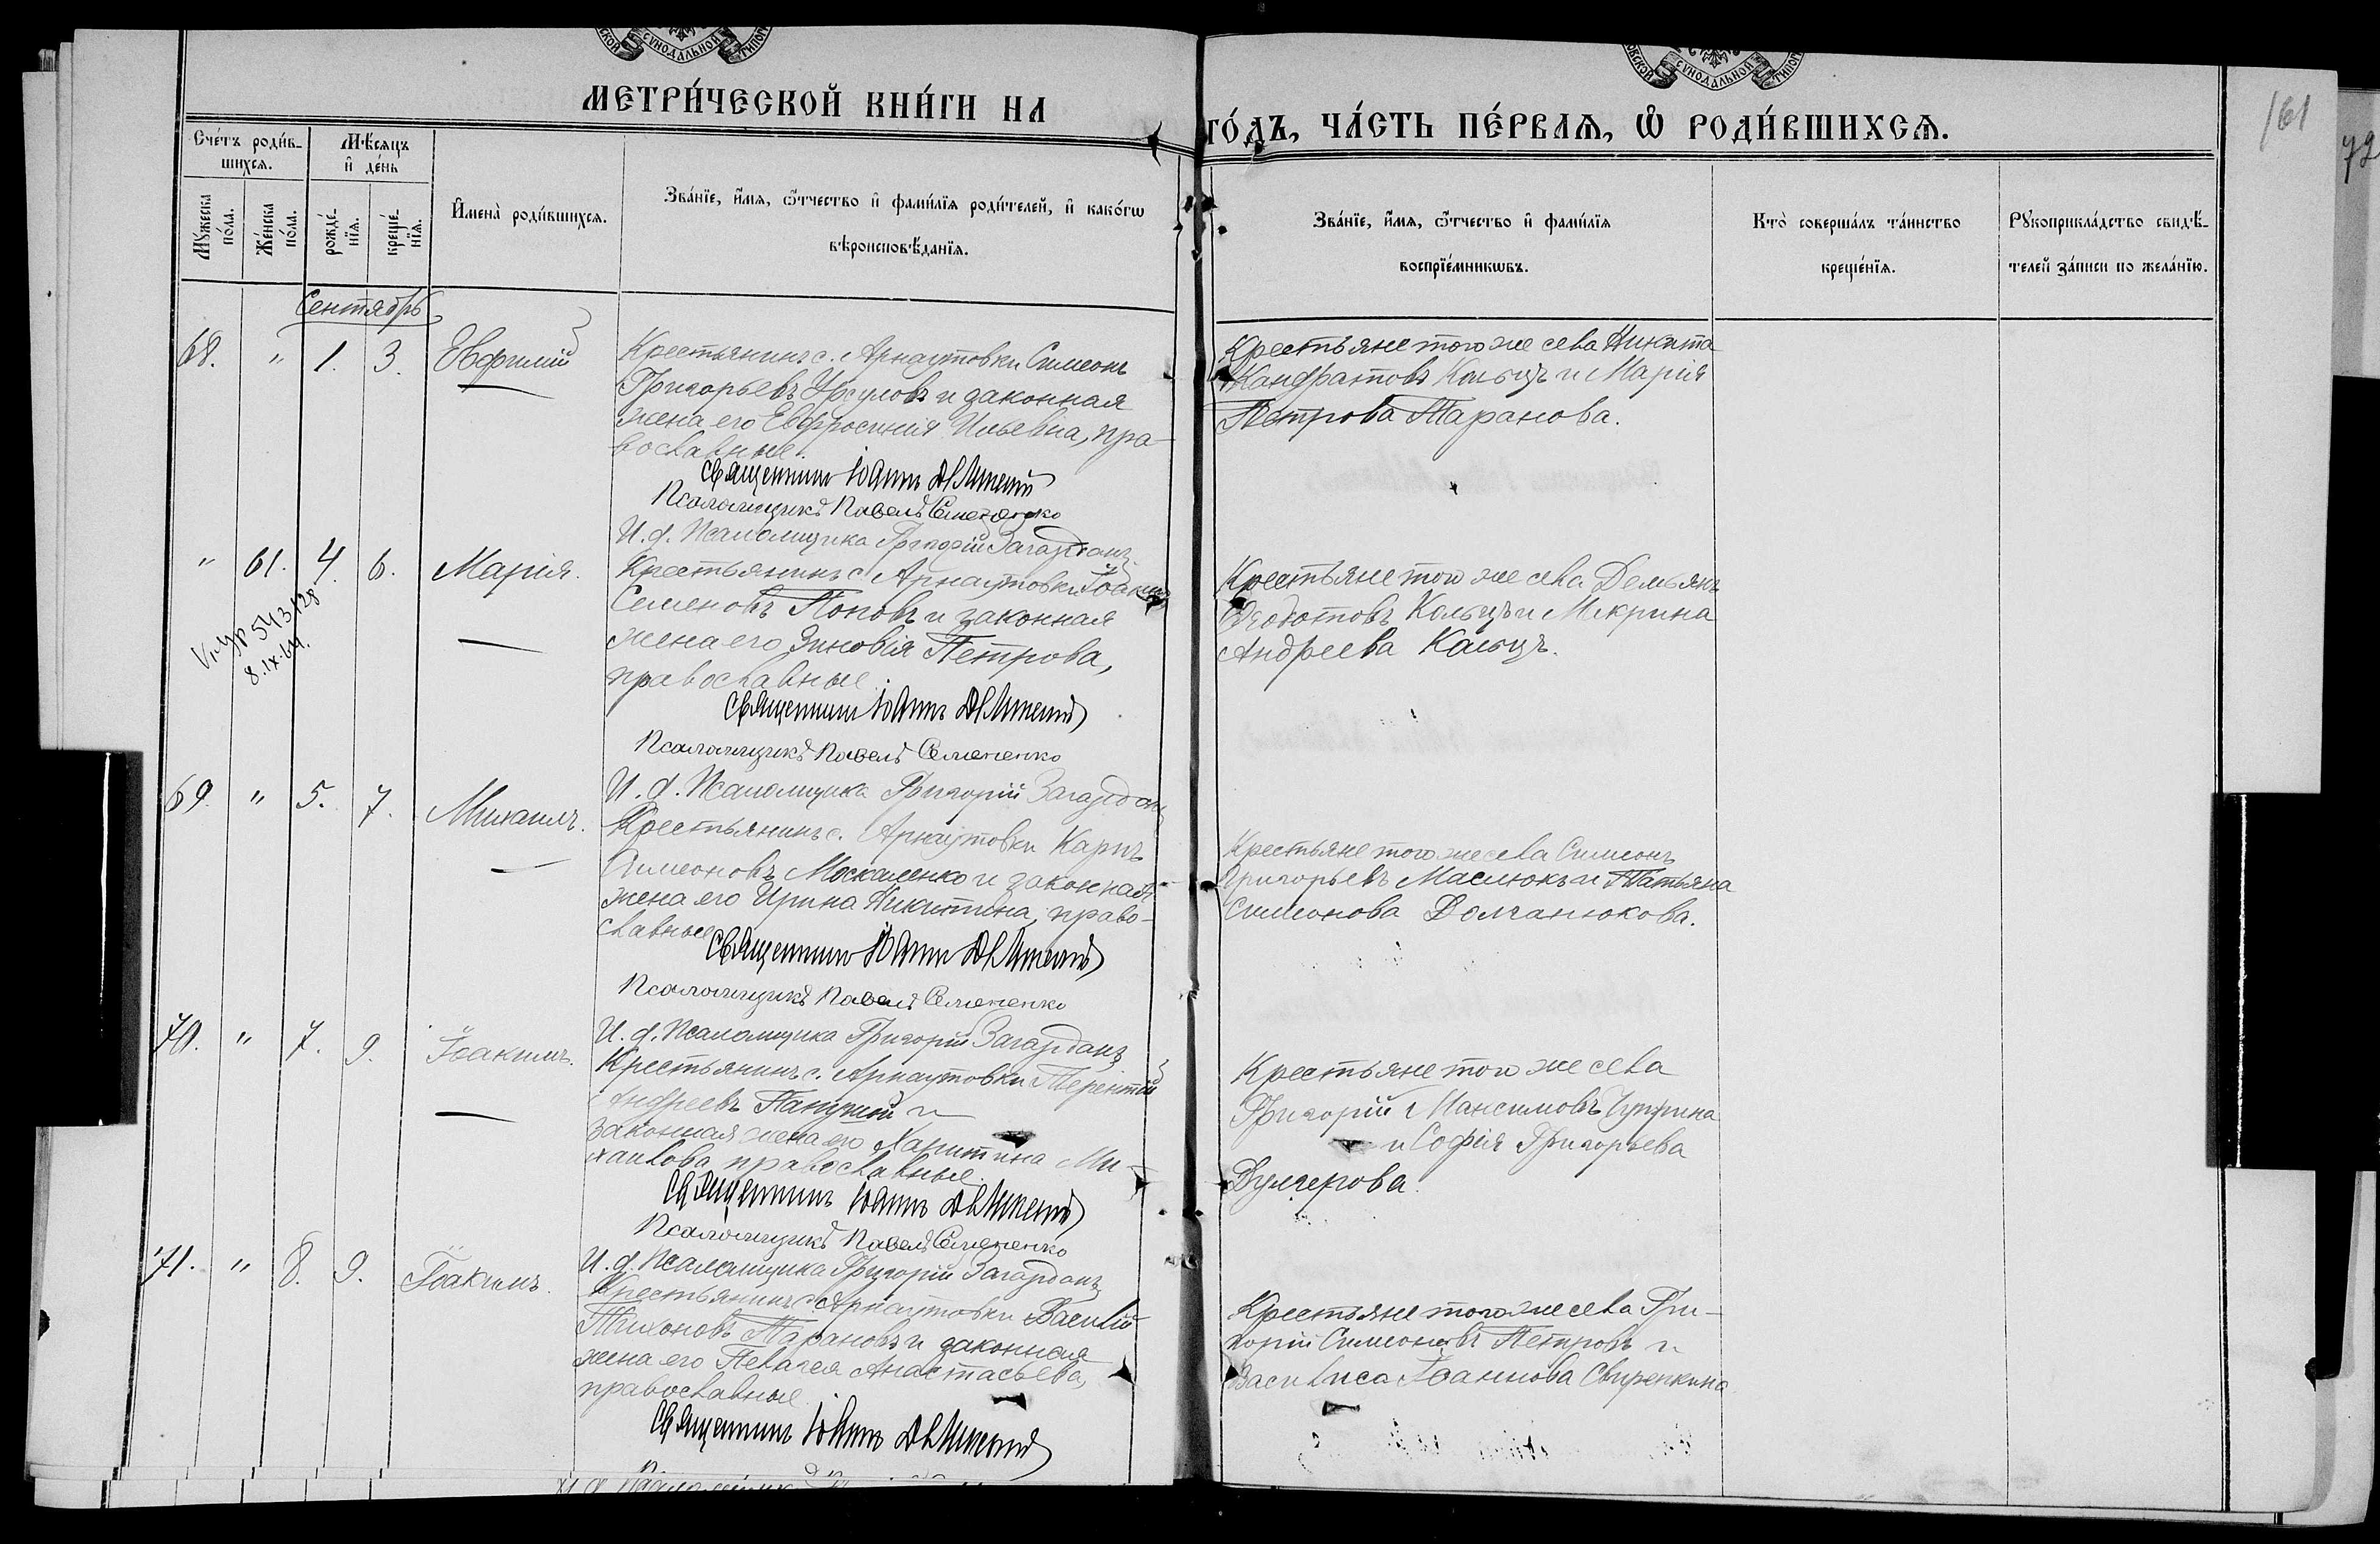 МЕТРИ́ЧЕСКОЙ КНИ́ГИ НА
ГО́ДЪ, ЧА́СТЬ ПЕ́РВАѦ, Ѡ РОДИ́ВШИХСѦ.
161
72
Сче́тъ роди́в-
шихсѧ.
Мѣ́сѧцъ
и де́нь
Му́жеска
по́ла.
Же́нска
по́ла.
рожде́-
нїѧ.
креще́-
нїѧ.
Имена̀ роди́вшихсѧ.
Зва́нїе, и́мѧ, ѻ́тчество и фами́лїѧ роди́телей, и како́гѡ
вѣроисповѣ́данїѧ.
Зва́нїе, и́мѧ, ѻ́тчество и фами́лїѧ
воспрїе́мникѡвъ.
Кто̀ соверша́лъ та́инство
креще́нїѧ.
Рꙋкоприкла́дство свидѣ́-
телей за́писи по жела́нїю.
Сентябрь
68. " 1. 3. Евфимій
Крестьянинъ с. Арнаутовки Симеонъ
Григорьевъ Урсуловъ и законная
жена его Евфросинія Ильевна, пра-
вославные.
Священникъ Іоаннъ
Псаломщикъ Павелъ Семененко
И. д. Псаломщика Григорій
Крестьяне того же села Никита
Кондратовъ Кольцъ и Марія
Петрова Таранова.
" 61. 4. 6. Марія.
8.IX.64.
Крестьянинъ с. Арнаутовки Іоакимъ
Семеновъ Поповъ и законная
жена его Зиновія Петрова,
православные
Священникъ Іоаннъ
Псаломщикъ Павелъ Семененко
И. д. Псаломщика Григорій
Крестьяне того же села Демьянъ
Ѳеодотовъ Кольцъ и Макрина
Андреева Кольцъ.
69. " 5. 7. Михаилъ.
Крестьянинъ с. Арнаутовки Карпъ
Симеоновъ Москаленко и законная
жена его Ирина Никитина, право-
славные
Священникъ Іоаннъ
Псаломщикъ Павелъ Семененко
И. д. Псаломщика Григорій
Крестьяне того же села Симеонъ
Григорьевъ Маслюкъ и Татьяна
Симеонова Долганюкова.
70. " 7. 9. Іоакимъ.
Крестьянинъ с. Арнаутовки Терентій
Андреевъ и
законная жена его Харитина Ми-
хаилова православные
Священникъ Іоаннъ
Псаломщикъ Павелъ Семененко
И. д. Псаломщика Григорій
Крестьяне того же села
Григорій Максимовъ Чуприна
и Софія Григорьева
Дулгерова.
71. " 8. 9. Іоакимъ.
Крестьянинъ с. Арнаутовки Василій
Тихоновъ Тарановъ и законная
жена его Пелагея Анастасьева,
православные
Священникъ Іоаннъ
Крестьяне того же села Гри-
горій Симеоновъ Петровъ и
Василиса Іоаннова Свирепкина